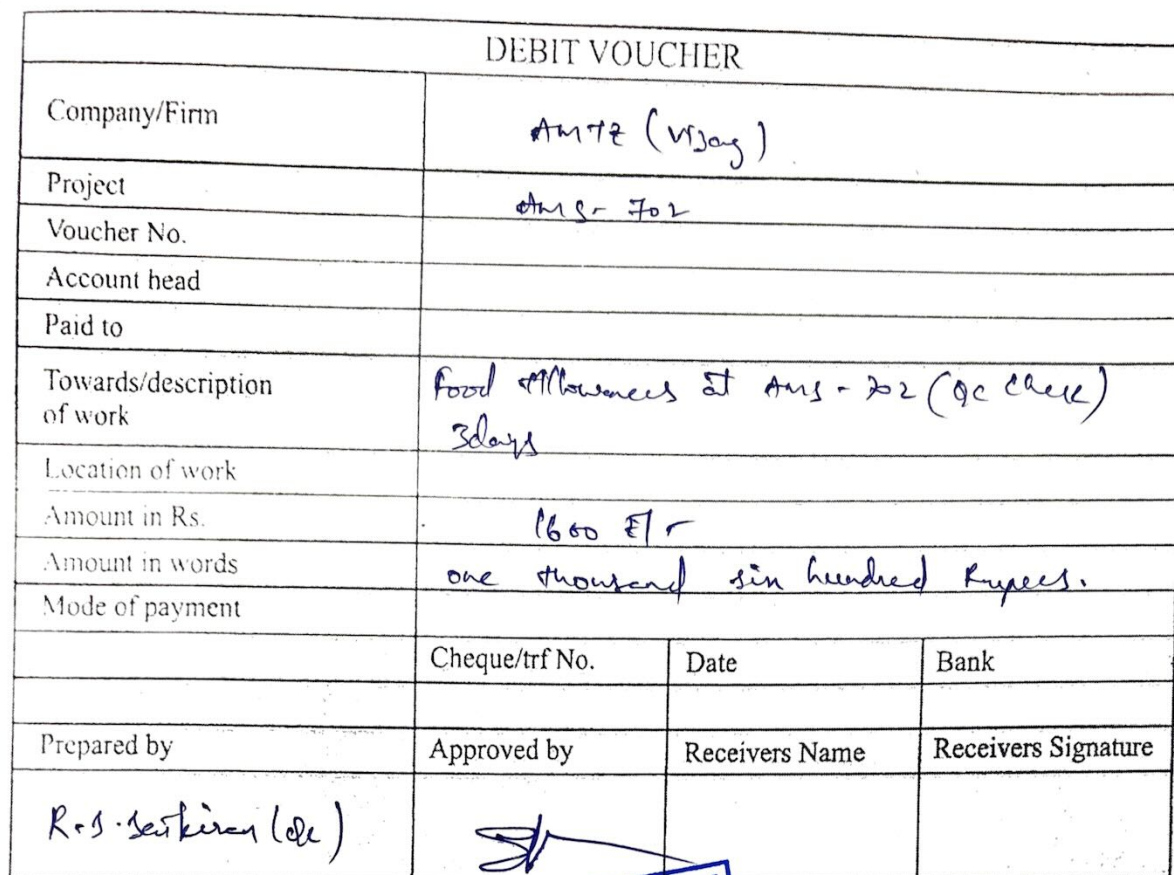 DEBIT VOUCHER
Company/Firm AMTZ (Vijay)
Project AMS- 702
Voucher No.
Account head
Paid to
Towards/description Food Allowances at AMS - 702 (QC Check)
of work 3days
Location of work
Amount in Rs. 1600
Amount in words one thousand six hundred Rupees.
Mode of payment
Cheque/trf No. Date Bank
Prepared by Approved by Receivers Name Receivers Signature